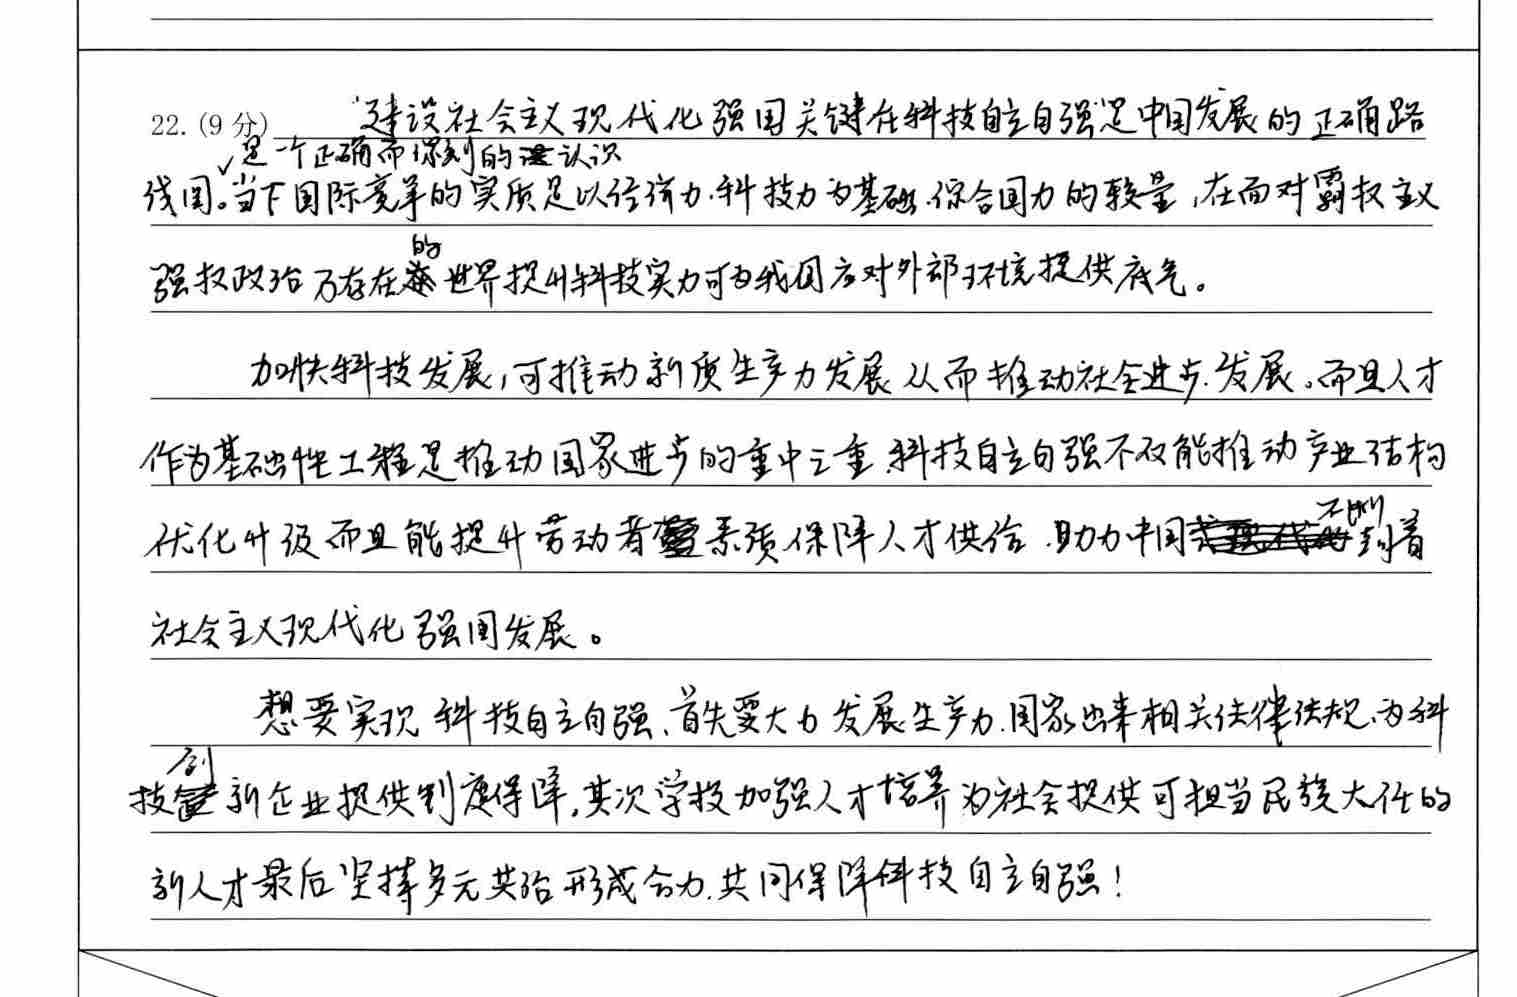 22.(9分) “建设社会主义现代化强国关键在科技自立自强”是中国发展的正确路
是一个正确而深刻的认识
线图。当下国际竞争的实质是以经济力.科技力为基础.综合国力的较量,在面对霸权主义
强权政治万存在的世界提升科技实力可为我国应对外部环境提供底气。
加快科技发展,可推动新质生产力发展从而推动社会进步.发展。而且人才
作为基础性工程是推动国家进步的重中之重.科技自立自强不仅能推动产业结构
优化升级而且能提升劳动者素质保障人才供给.助力中国不断向着
社会主义现代化强国发展。
想要实现科技自立自强、首先要大力发展生产力.国家出来相关法律法规.为科
技创新企业提供制度保障,其次学校加强人才培养为社会提供可担当民族大任的
新人才最后坚持多元共治形成合力.共同保障科技自立自强!